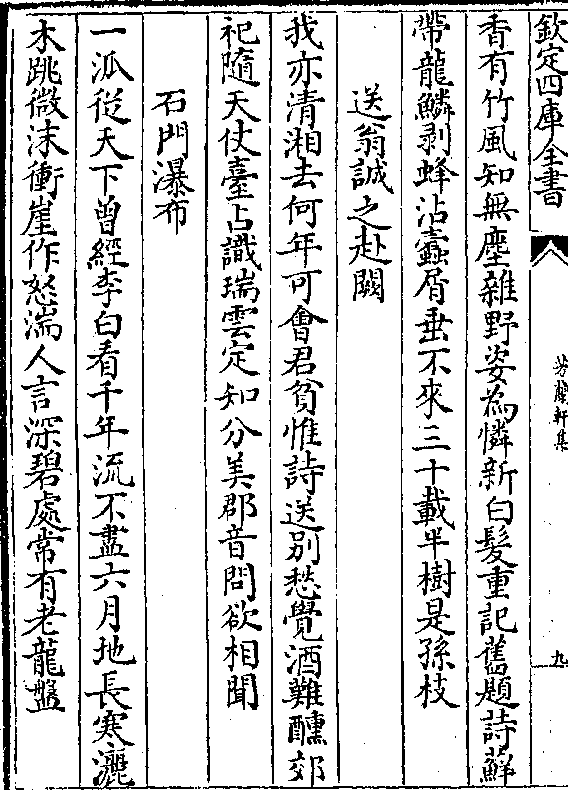 欽定四庫全書
芳蘭軒集
九
香有竹風知無塵雜野姿為憐新白髮重記舊題詩蘚
帶龍鱗剥蜂沾蠧屑垂不來三十載半樹是孫枝
送翁誠之赴闕
我亦清湘去何年可會君貧惟詩送别愁覺酒難醺郊
祀隨天仗臺占識瑞雲定知分美郡音問欲相聞
石門瀑布
一派從天下曽經李白看千年流不盡六月地長寒灑
木跳微沫衝崖作怒湍人言深碧處常有老龍盤